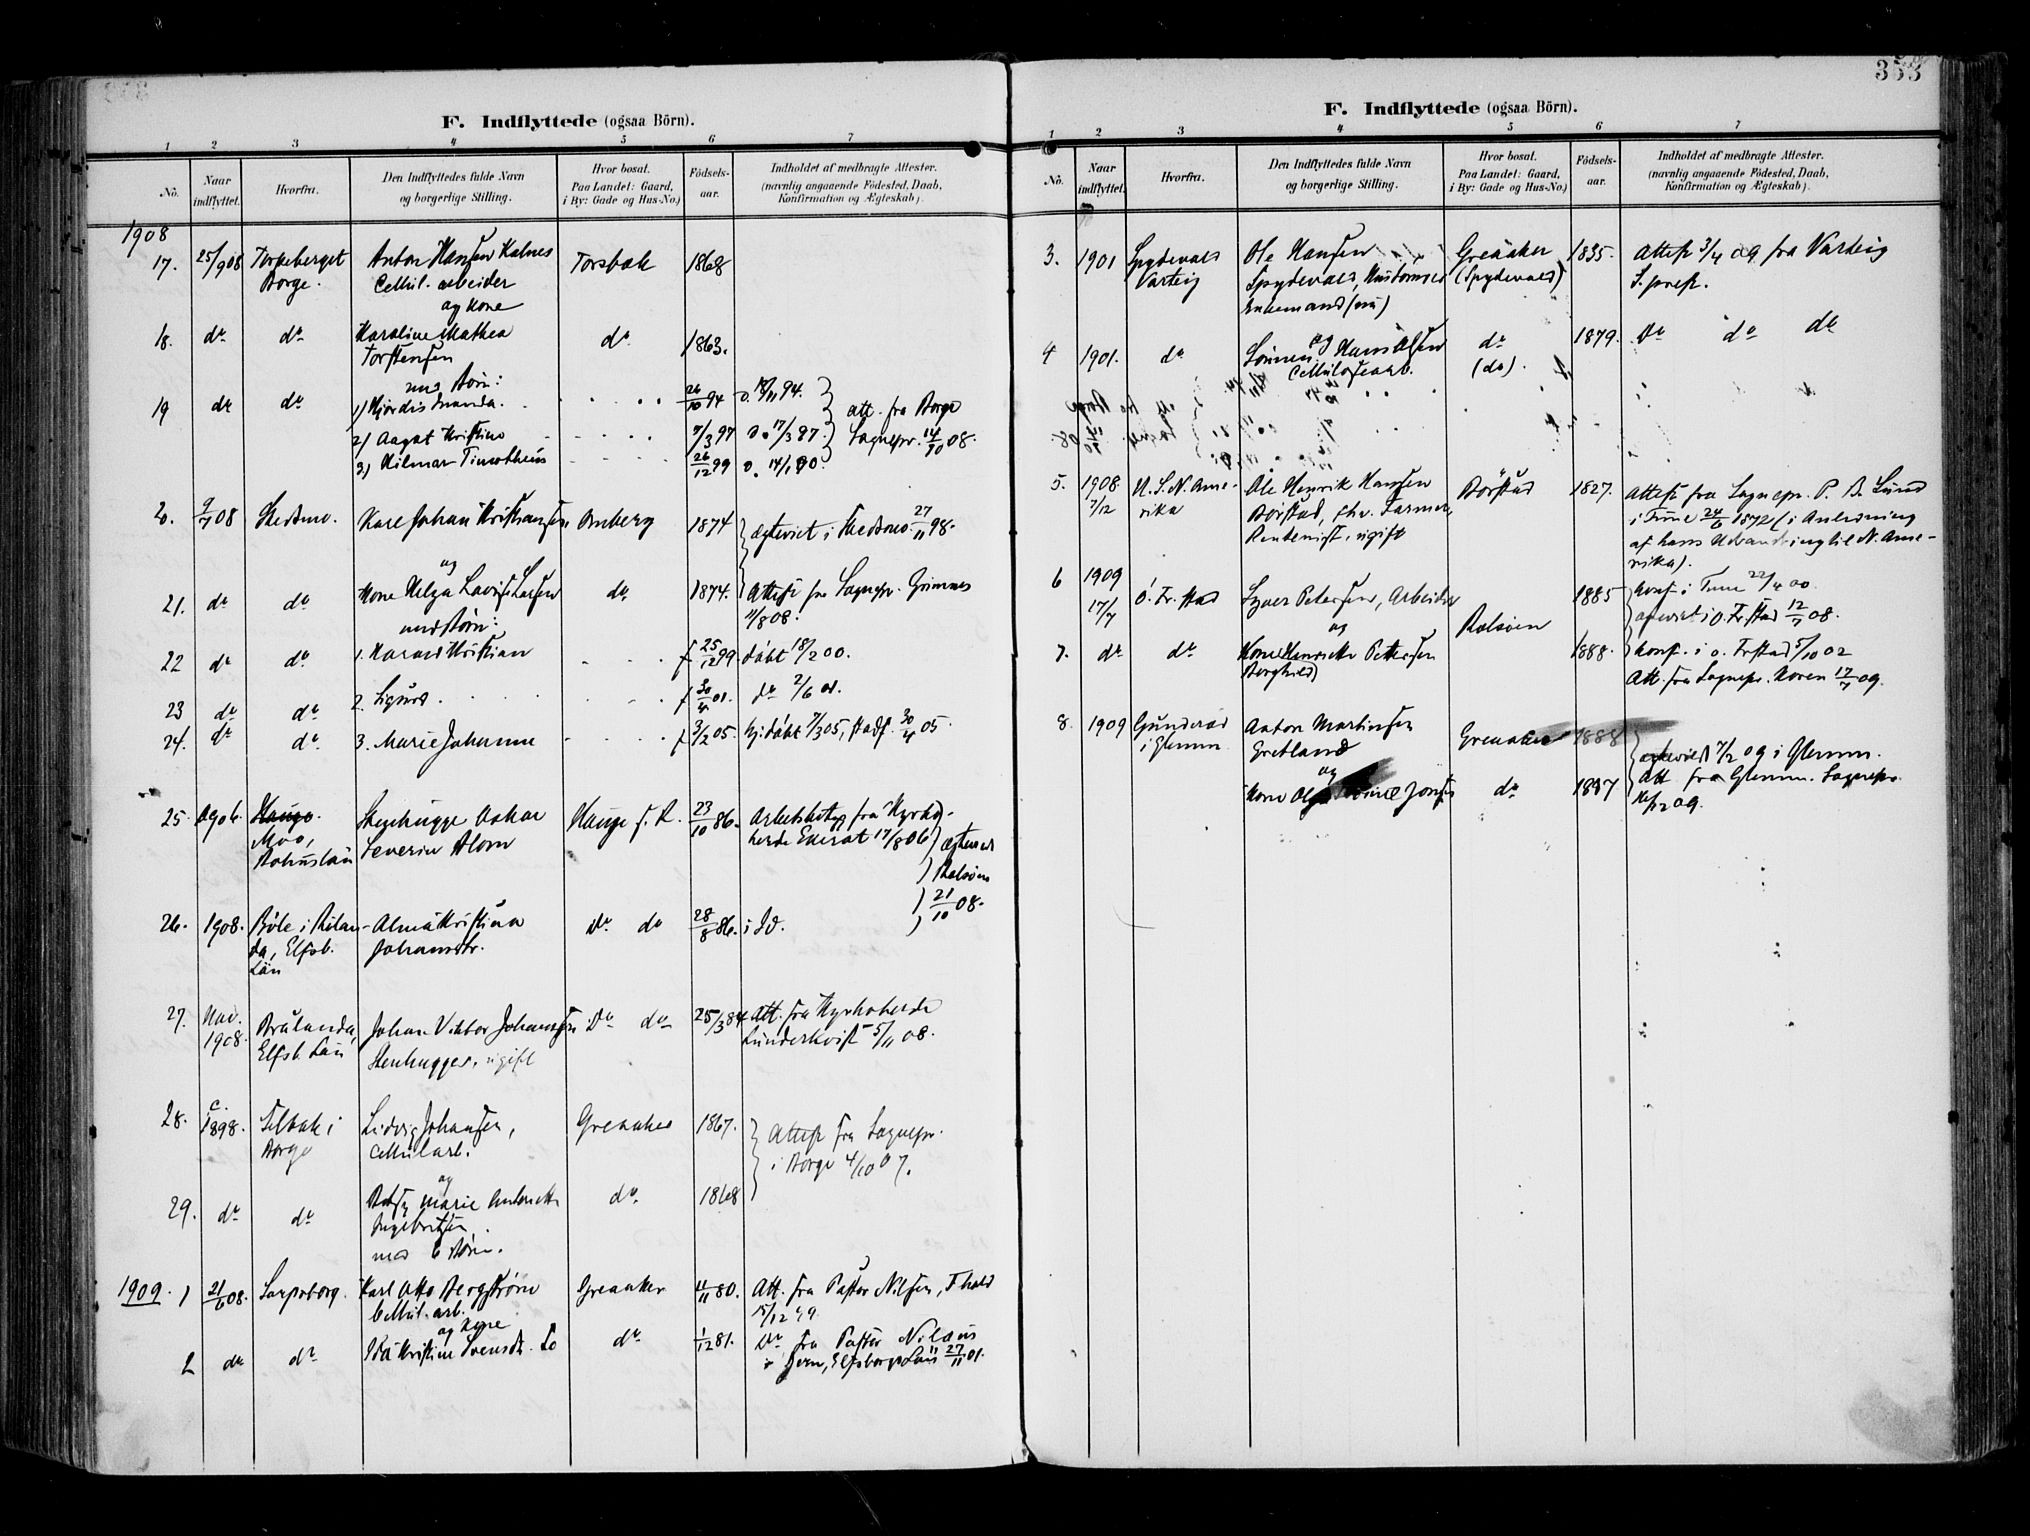 353
F. Indflyttede (ogsaa Börn).
1 2 3 4 5 6 7
No. Naar indflyttet. Hvorfra. Den Indflyttedes fulde Navn og borgerlige Stilling. Hvor bosat. Paa Landet: Gaard, i By: Gade og Hus-No.) Födsels-aar. Indholdet af medbragte Attester. (navnlig angaaende Födested, Daab, Konfirmation og Ægteskab).
1908
17. 25/9 08 Torkeberget Anton Hansen Kalnes Torsbak 1868
Borge. Cellul. arbeider
og Kone
18. do do Karoline Mathea do 1863.
Torstensen
med Börn:
19 do do 1) Hjördis 26/10 94 D. 18/11 94.
2) Aagot Kristine 7/3 97 D. 17/3 97. att. fra Borge
3) Hilmar Timotheus 26/12 99 D. 14/1 00. Sognepr. 14/10 08.
20. 9/7 08 Skedsmo. Kare Johan Kristiansen 1874 ægteviet i Skedsmo 27/11 98.
og
21. do do Kone Helga Lovise Larsen do 1874. Attest fra Sognepr. Grimnes
med Börn: 11/8 08.
22 do do 1. Harald Kristian f 25/12 99 döbt 18/2 00.
23 do do 2. Sigurd f 30/4 01. do 2/6 01.
24. do do 3. Marie Johanne f 3/2 05 hj. döbt 7/3 05, stadf. 30/4 05.
25 1906. Hauge. Stenhugger Oskar Hauge f. R. 23/10 86. Arbetsbetyg fra Kyrko-
Moo, Severin Blom herde Ekerot 17/8 06 ægteviet
Bohuslän Rolsöen
21/10 08.
26. 1908. Böle i Rölan- Alma Kristina Do do 28/8 86. i Id.
da, Elfsb. Johansdtr.
Län
27. Nov. 1908. Brålanda, Johan Viktor Johansson Do do 25/3 84 Att. fra Kyrkoherde
Elfsb. Län Stenhugger, ugift Lunderkvist 5/11 08.
28. c. 1898. Selbak i Ludvig Johansen, Greaaker 1867. Attest fra Sognepr.
Borge Cellul arb. i Borge 4/10 07.
og
29. do do Marie do 1868
Ingebretsen
med 6 Börn.
1909. 1 21/6 08. Sarpsborg. Karl Otto Bergström Greaaker 4/11 80. Att. fra Pastor Nilsen, Fhald
Cellul. arb. 15/12 99.
og Kone
2 do do Ida Kristine Svensdt. do 1/12 81. Do fra Pastor
Elfsborgs Län 27/11 01.
F. Indflyttede (ogsaa Börn).
1 2 3 4 5 6 7
No. Naar indflyttet. Hvorfra. Den Indflyttedes fulde Navn og borgerlige Stilling. Hvor bosat. Paa Landet: Gaard, i By: Gade og Hus-No.) Födsels-aar. Indholdet af medbragte Attester. (navnlig angaaende Födested, Daab, Konfirmation og Ægteskab).
3. 1901 Spydevold Ole Hansen Greaaker 1835. Attest 3/4 09 fra Varteig
Varteig Spydevold, Husbomand (Spydevold) S. prest.
Enkemand (nu)
4 1901. do Sönnen og Hans Olsen do 1879. Do do do
Cellulosearb. (do).
5. 1908 U. S. N. Ame- Ole Henrik Hansen Börstad 1827. Attest fra Sognepr. P. B. Lund
7/12 rika Börstad, fhv. Farmer, i Tune 24/6 1872 (i Anledning
Rentenist, ugift af hans Udvandring til N. Ame-
rika).
6 1909 Ö. Fr.stad Syver Petersen, Arbeider 1885 Konf. i Tune 22/4 00.
17/7 og Rolsöen ægteviet i Ö. Fr.stad 12/7 08.
7. do do Kone Henriette Pettersen 1888. Konf. i ö. Frstad 5/10 02
Borghild) Att. fra Sognepr. Koren 17/7 09.
8. 1909 Gunderöd Anton Martinsen Greaaker 1888 ægteviet 7/2 09 i Glemm.
i Glemm Gretland
og Att. fra Glemm. Sognepr.
Kone do 1887 12 09.